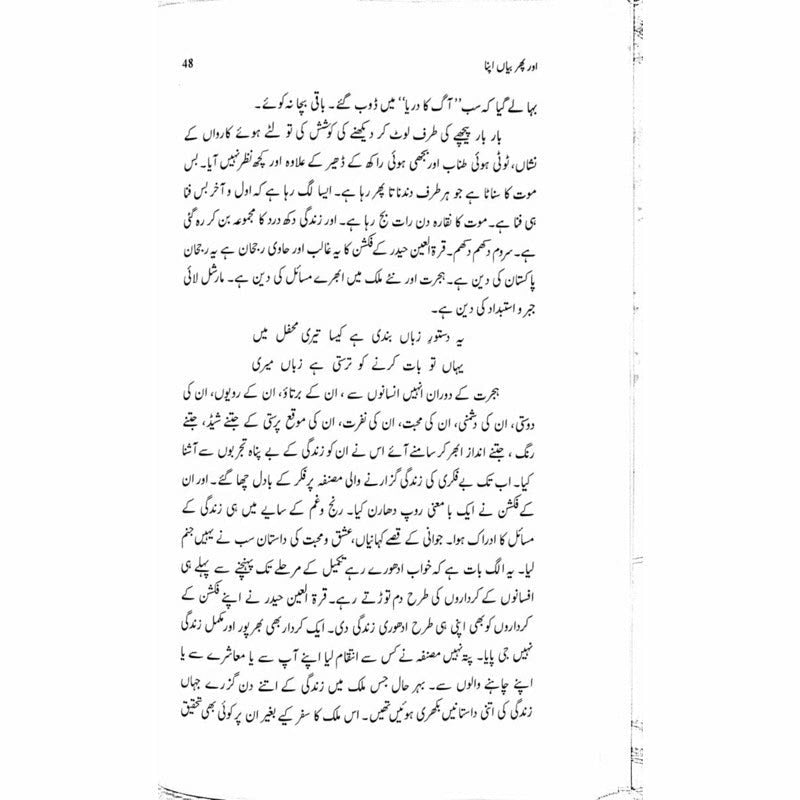 اور پھر بیاں اپنا
48
بہا لے گیا کہ سب ’’آگ کا دریا‘‘ میں ڈوب گئے۔ باقی بچا نہ کوئے۔
بار بار پیچھے کی طرف لوٹ کر دیکھنے کی کوشش کی تو لٹے ہوئے کارواں کے
نشاں، ٹوٹی ہوئی طناب اور بجھی ہوئی راکھ کے ڈھیر کے علاوہ اور کچھ نظر نہیں آیا۔ بس
موت کا سناٹا ہے جو ہر طرف دندناتا پھر رہا ہے۔ ایسا لگ رہا ہے کہ اول و آخر بس فنا
ہی فنا ہے۔ موت کا نقارہ دن رات بج رہا ہے۔ اور زندگی دکھ درد کا مجموعہ بن کر رہ گئی
ہے۔ سروم دکھم دکھم۔ قرۃ العین حیدر کے فکشن کا یہ غالب اور حاوی رجحان ہے یہ رجحان
پاکستان کی دین ہے۔ ہجرت اور نئے ملک میں ابھرے مسائل کی دین ہے۔ مارشل لائی
جبر و استبداد کی دین ہے۔
یہ دستور زباں بندی ہے کیسا تیری محفل میں
یہاں تو بات کرنے کو ترستی ہے زباں میری
ہجرت کے دوران انہیں انسانوں سے ، ان کے برتاؤ، ان کے رویوں، ان کی
دوستی، ان کی دشمنی، ان کی محبت، ان کی نفرت، ان کی موقع پرستی کے جتنے شیڈ، جتنے
رنگ ، جتنے انداز ابھر کر سامنے آئے اس نے ان کو زندگی کے بے پناہ تجربوں سے آشنا
کیا۔ اب تک بے فکری کی زندگی گزارنے والی مصنفہ پر فکر کے بادل چھا گئے۔ اور ان
کے فکشن نے ایک با معنی روپ دھارن کیا۔ رنج و غم کے سایے میں ہی زندگی کے
مسائل کا ادراک ہوا۔ جوانی کے قصے کہانیاں، عشق و محبت کی داستان سب نے یہیں جنم
لیا۔ یہ الگ بات ہے کہ خواب ادھورے رہے تکمیل کے مرحلے تک پہنچنے سے پہلے ہی
افسانوں کے کرداروں کی طرح دم توڑتے رہے۔ قرۃ العین حیدر نے اپنے فکشن کے
کرداروں کو بھی اپنی ہی طرح ادھوری زندگی دی۔ ایک کردار بھی بھرپور اور مکمل زندگی
نہیں جی پایا۔ پتہ نہیں مصنفہ نے کس سے انتقام لیا اپنے آپ سے یا معاشرے سے یا
اپنے چاہنے والوں سے۔ بہر حال جس ملک میں زندگی کے اتنے دن گزرے جہاں
زندگی کی اتنی داستانیں بکھری ہوئیں تھیں۔ اس ملک کا سفر کیے بغیر ان پر کوئی بھی تحقیق